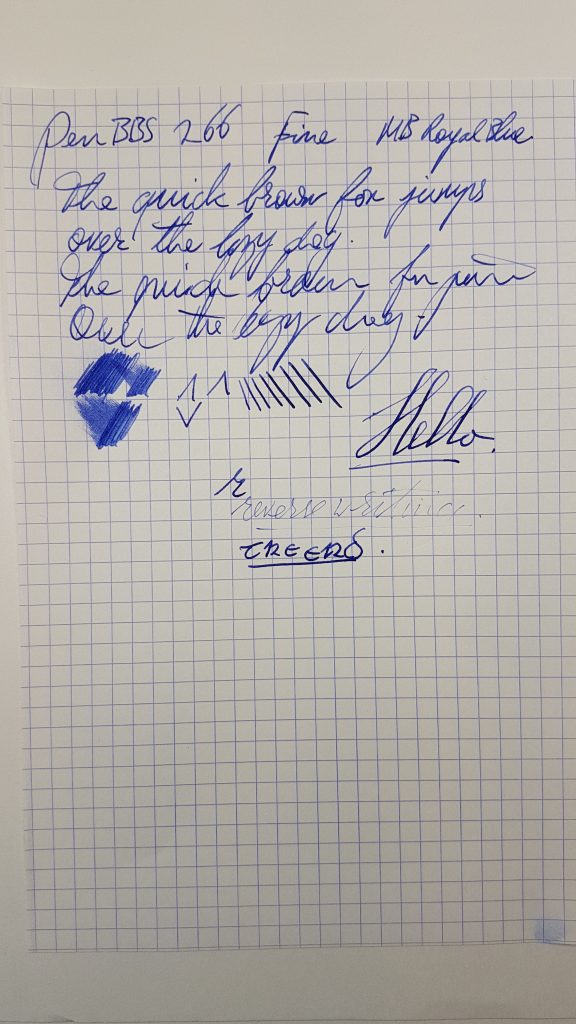 Pen BBS 266 Fine MB Royal Blue
The quick brown fox jumps
over the lazy dog.
The quick brown fox
Over the lazy dog.
Hello.
r
reverse writing.